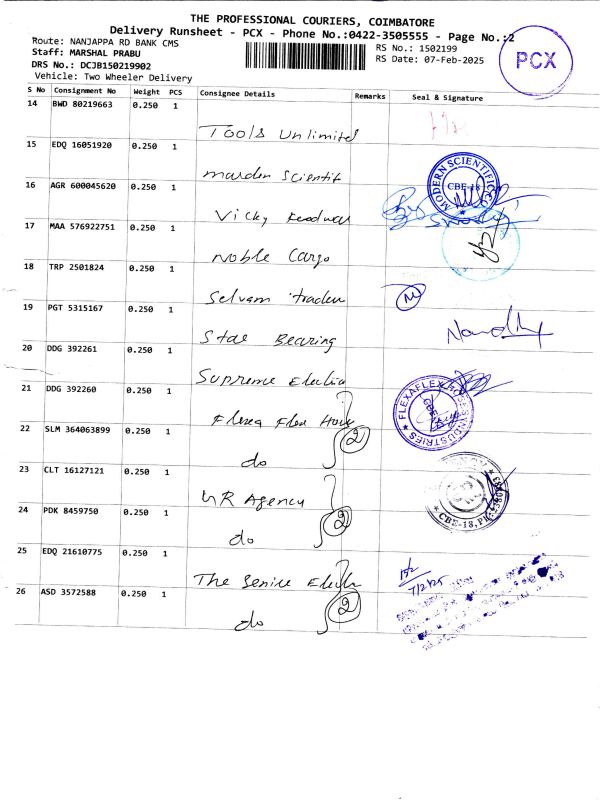 THE PROFESSIONAL COURIERS, COIMBATORE
Delivery Runsheet - PCX - Phone No.:0422-3505555 - Page No.:2
Route: NANJAPPA RD BANK CMS
RS No.: 1502199
Staff: MARSHAL PRABU
RS Date: 07-Feb-2025
DRS No.: DCJB150219902
Vehicle: Two Wheeler Delivery
PCX
S No Consignment No Weight PCS Consignee Details Remarks Seal & Signature
14 BWD 80219663 0.250 1
Tools Unlimited
15 EDQ 16051920 0.250 1
marden Scientif
MODERN SCIENTIFIC
CBE-18
16 AGR 600045620 0.250 1
Vicky
17 MAA 576922751 0.250 1
Noble Cargo
18 TRP 2501824 0.250 1
Selvam traders
19 PGT 5315167 0.250 1
Star Bearing
20 DDG 392261 0.250 1
Supreme Electrica
21 DDG 392260 0.250 1
Flexa Flex Hose
FLEXAFLEX HOSES INDUSTRIES
22 SLM 364063899 0.250 1
do 2
23 CLT 16127121 0.250 1
UR Agency
CBE-18
24 PDK 8459750 0.250 1
do 2
25 EDQ 21610775 0.250 1
The Senice Electr
7/2/25
26 ASD 3572588 0.250 1
do 2